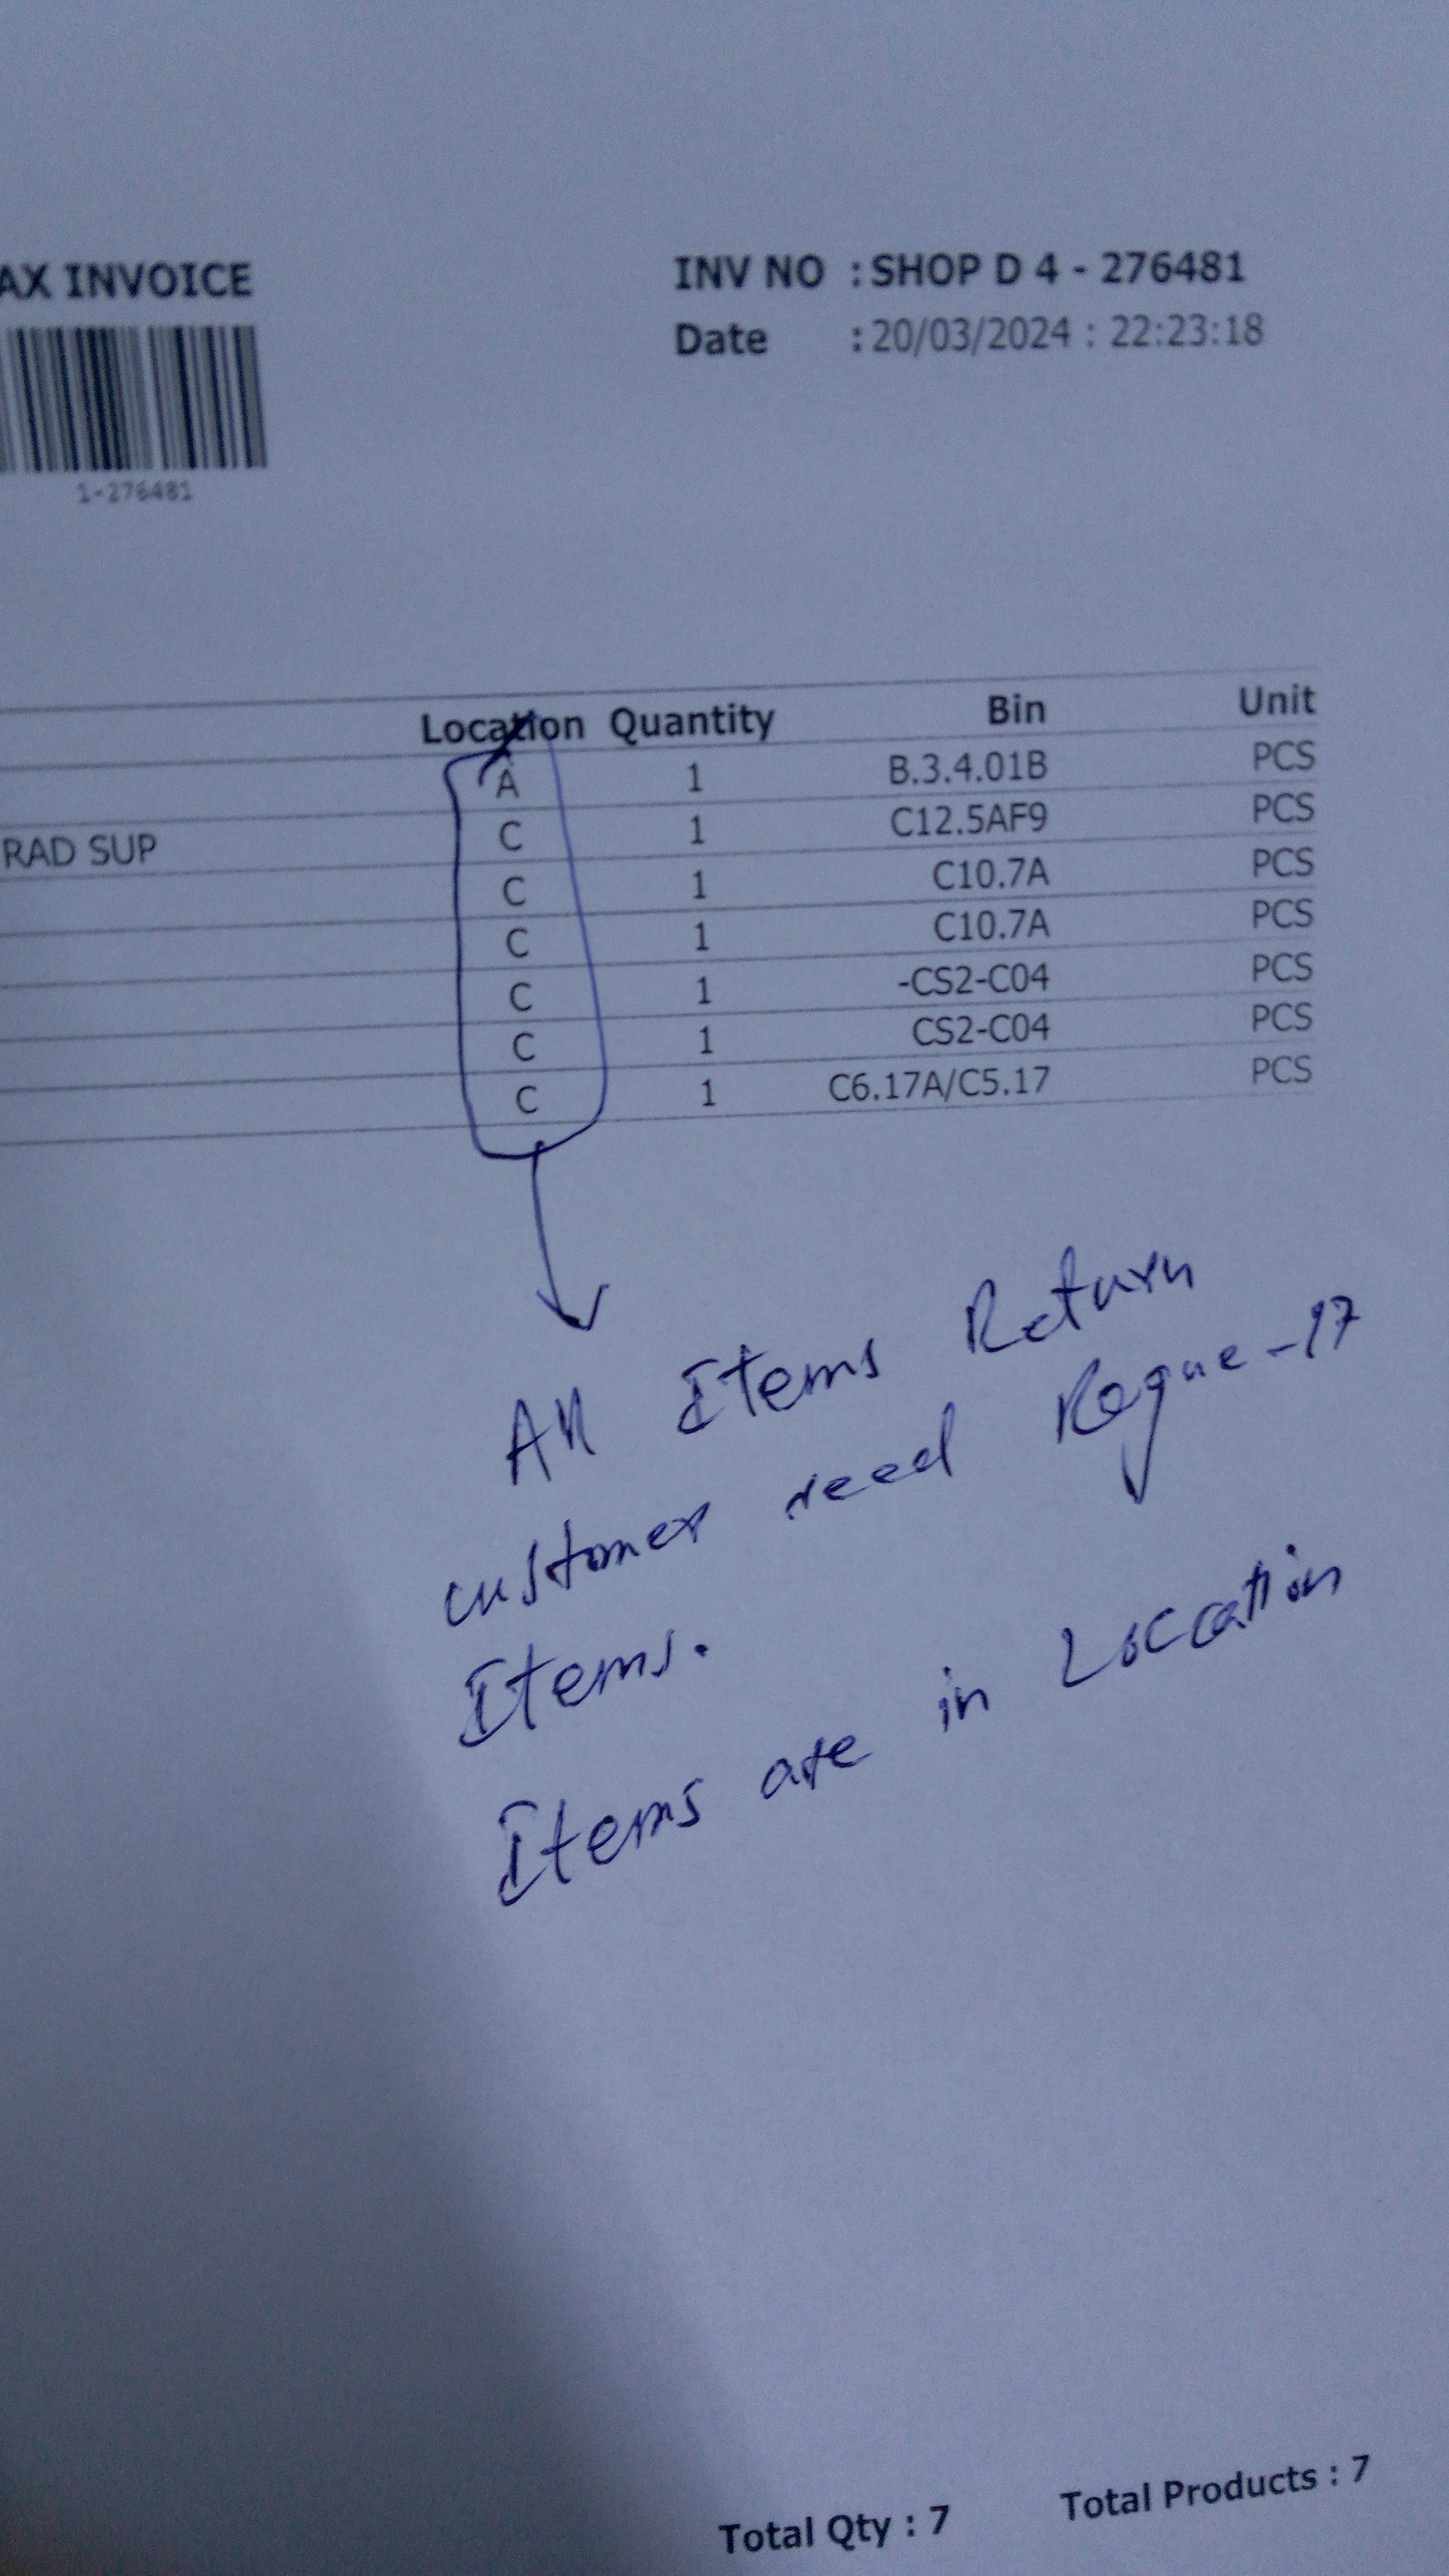 AX INVOICE
INV NO : SHOP D 4 - 276481
Date : 20/03/2024 : 22:23:18
1-276481
Location Quantity Bin Unit
A 1 B.3.4.01B PCS
RAD SUP C 1 C12.5AF9 PCS
C 1 C10.7A PCS
C 1 C10.7A PCS
C 1 -CS2-C04 PCS
C 1 CS2-C04 PCS
C 1 C6.17A/C5.17 PCS
All Items Return
customer need Rogue-17
Items.
Items are in Location
Total Qty : 7 Total Products : 7